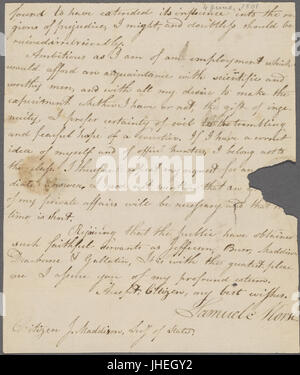 4 June, 1801
found to have extended its influence into the re-
gions of prejudice, I might, and doubtless should be
ruined irretrievably.
Ambitious as I am of an employment which
would afford an acquaintance with scientific and
worthy men, and with all my desire to make the
experiment whether I have or not, the gift of inge-
nuity, I prefer certainty of evil to the trembling
and fearful hope of a If I have a correct
idea of myself and of office hunters, I belong not to
the class. I therefore my request for an
diate answer,
of my private affairs will be necessary that
time is short.
Rejoicing that the public have obtained
such faithful servants as Jefferson, Burr, Madison
Dearborne & Gallatin, it is with the greatest plea-
sure I assure you of my profound esteem.
Accept, Citizen, my best wishes.
Samuel Morse
Citizen J. Maddison, Secy of State
alamy
Image ID: JHEGY2
www.alamy.com